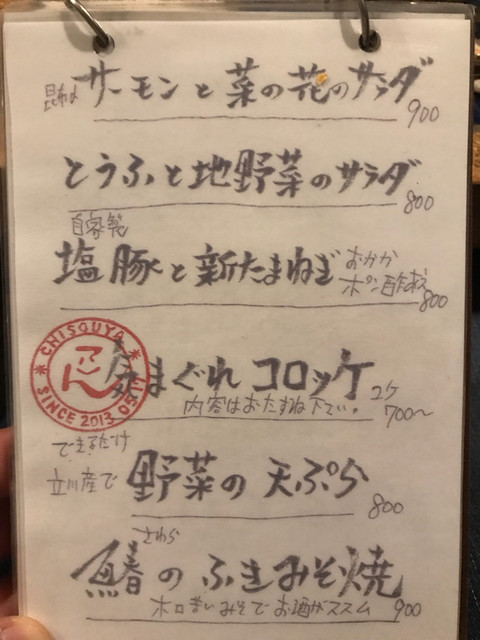 昆布〆サーモンと菜の花のサラダ
900
とうふと地野菜のサラダ
800
自家製
塩豚と新たまねぎ おかか
ポン酢ポン
800
CHISOUYA
SINCE 2013.03
気まぐれコロッケ 2ケ
内容はおたずね下さい。 700〜
できるだけ
立川産で 野菜の天ぷら
800
さわら
鰆のふきみそ焼
ホロ苦いみそでお酒がススム 900